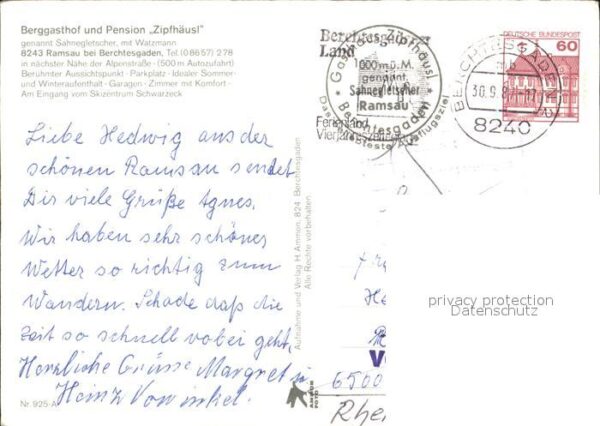 Berggasthof und Pension „Zipfhäusl"
genannt Sahnegletscher, mit Watzmann
8243 Ramsau bei Berchtesgaden, Tel. (08657) 278
in nächster Nähe der Alpenstraße - (500 m Autozufahrt)
Berühmter Aussichtspunkt - Parkplatz - Idealer Sommer-
und Winteraufenthalt - Garagen - Zimmer mit Komfort -
Am Eingang vom Skizentrum Schwarzeck
Berchtesgadener
Land
Ferienland
Vierjahreszeiten
Gasthaus Zipfhäusl
1000 m ü. M.
genannt
Sahnegletscher
Ramsau
Berchtesgaden
Das beliebteste Ausflugsziel
BERCHTESGADEN
mb
30.9.8
8240
DEUTSCHE BUNDESPOST
60
Liebe Hedwig aus der
schönen Ramsau sendet
Dir viele Grüße Agnes.
Wir haben sehr schönes
Wetter so richtig zum
Wandern. Schade daß die
Zeit so schnell vobei geht.
Herzliche Grüsse Margret u
Heinz Vowinkel.
Aufnahme und Verlag H. Ammon, 824 Berchtesgaden
Alle Rechte vorbehalten
AMMON
FOTO
Nr. 925-A
He
6500
Rhe
privacy protection
Datenschutz